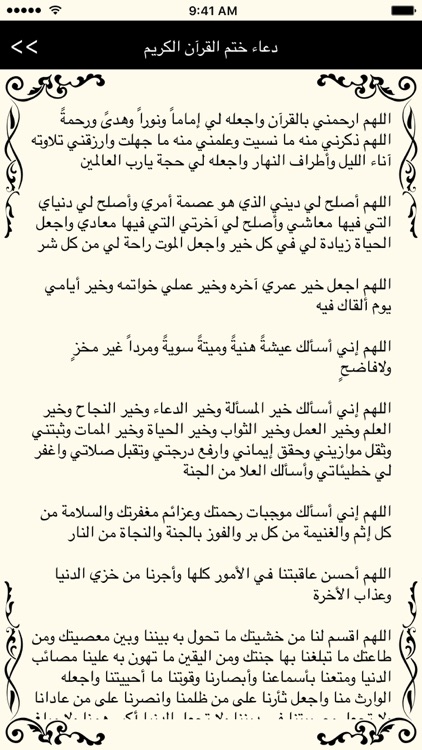 9:41 AM
<< دعاء ختم القرآن الكريم
اللهم ارحمني بالقرآن واجعله لي إماماً ونوراً وهدىً ورحمةً
اللهم ذكرني منه ما نسيت وعلمني منه ما جهلت وارزقني تلاوته
آناء الليل وأطراف النهار واجعله لي حجة يارب العالمين
اللهم أصلح لي ديني الذي هو عصمة أمري وأصلح لي دنياي
التي فيها معاشي وأصلح لي آخرتي التي فيها معادي واجعل
الحياة زيادة لي في كل خير واجعل الموت راحة لي من كل شر
اللهم اجعل خير عمري آخره وخير عملي خواتمه وخير أيامي
يوم ألقاك فيه
اللهم إني أسألك عيشةً هنيةً وميتةً سويةً ومرداً غير مخزٍ
ولافاضحٍ
اللهم إني أسألك خير المسألة وخير الدعاء وخير النجاح وخير
العلم وخير العمل وخير الثواب وخير الحياة وخير الممات وثبتني
وثقل موازيني وحقق إيماني وارفع درجتي وتقبل صلاتي واغفر
لي خطيئاتي وأسألك العلا من الجنة
اللهم إني أسألك موجبات رحمتك وعزائم مغفرتك والسلامة من
كل إثم والغنيمة من كل بر والفوز بالجنة والنجاة من النار
اللهم أحسن عاقبتنا في الأمور كلها وأجرنا من خزي الدنيا
وعذاب الأخرة
اللهم اقسم لنا من خشيتك ما تحول به بيننا وبين معصيتك ومن
طاعتك ما تبلغنا بها جنتك ومن اليقين ما تهون به علينا مصائب
الدنيا ومتعنا بأسماعنا وأبصارنا وقوتنا ما أحييتنا واجعله
الوارث منا واجعل ثأرنا على من ظلمنا وانصرنا على من عادانا